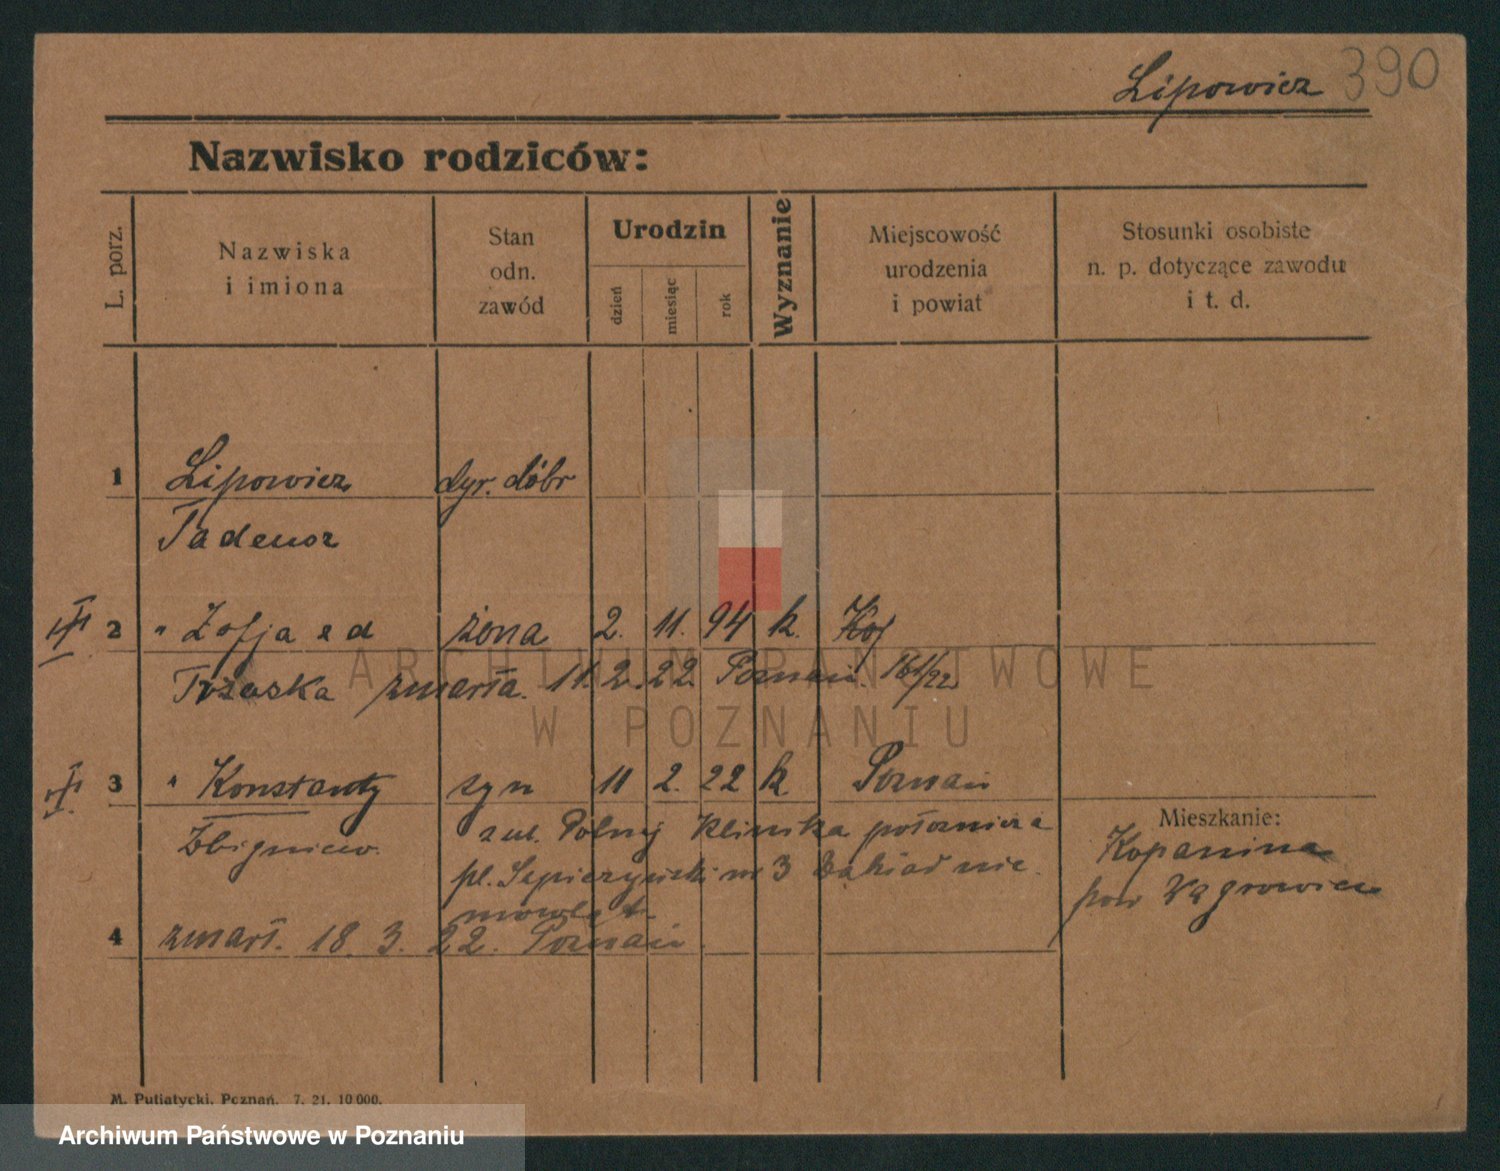 Lipowicz 390
Nazwisko rodziców:
L. porz.
Nazwiska
i imiona
Stan
odn.
zawód
Urodzin
dzień
miesiąc
rok
Wyznanie
Miejscowość
urodzenia
i powiat
Stosunki osobiste
n. p. dotyczące zawodu
i t. d.
1 Lipowicz dyr. dóbr
Tadeusz
2 " Zofja żona 2. 11. 94 k.
Trzaska zmarła 11. 2. 22 Poznań
ARCHIWUM PAŃSTWOWE
W POZNANIU
3 " Konstanty syn 11 2. 22 k Poznań
Zbigniew
Klinika położnicza
pl. nr 3
4 zmarł. 18. 3. 22. Poznań.
Mieszkanie:
Kopanina
pow Wągrowiec
M. Putiatycki, Poznań. 7. 21. 10 000.
Archiwum Państwowe w Poznaniu